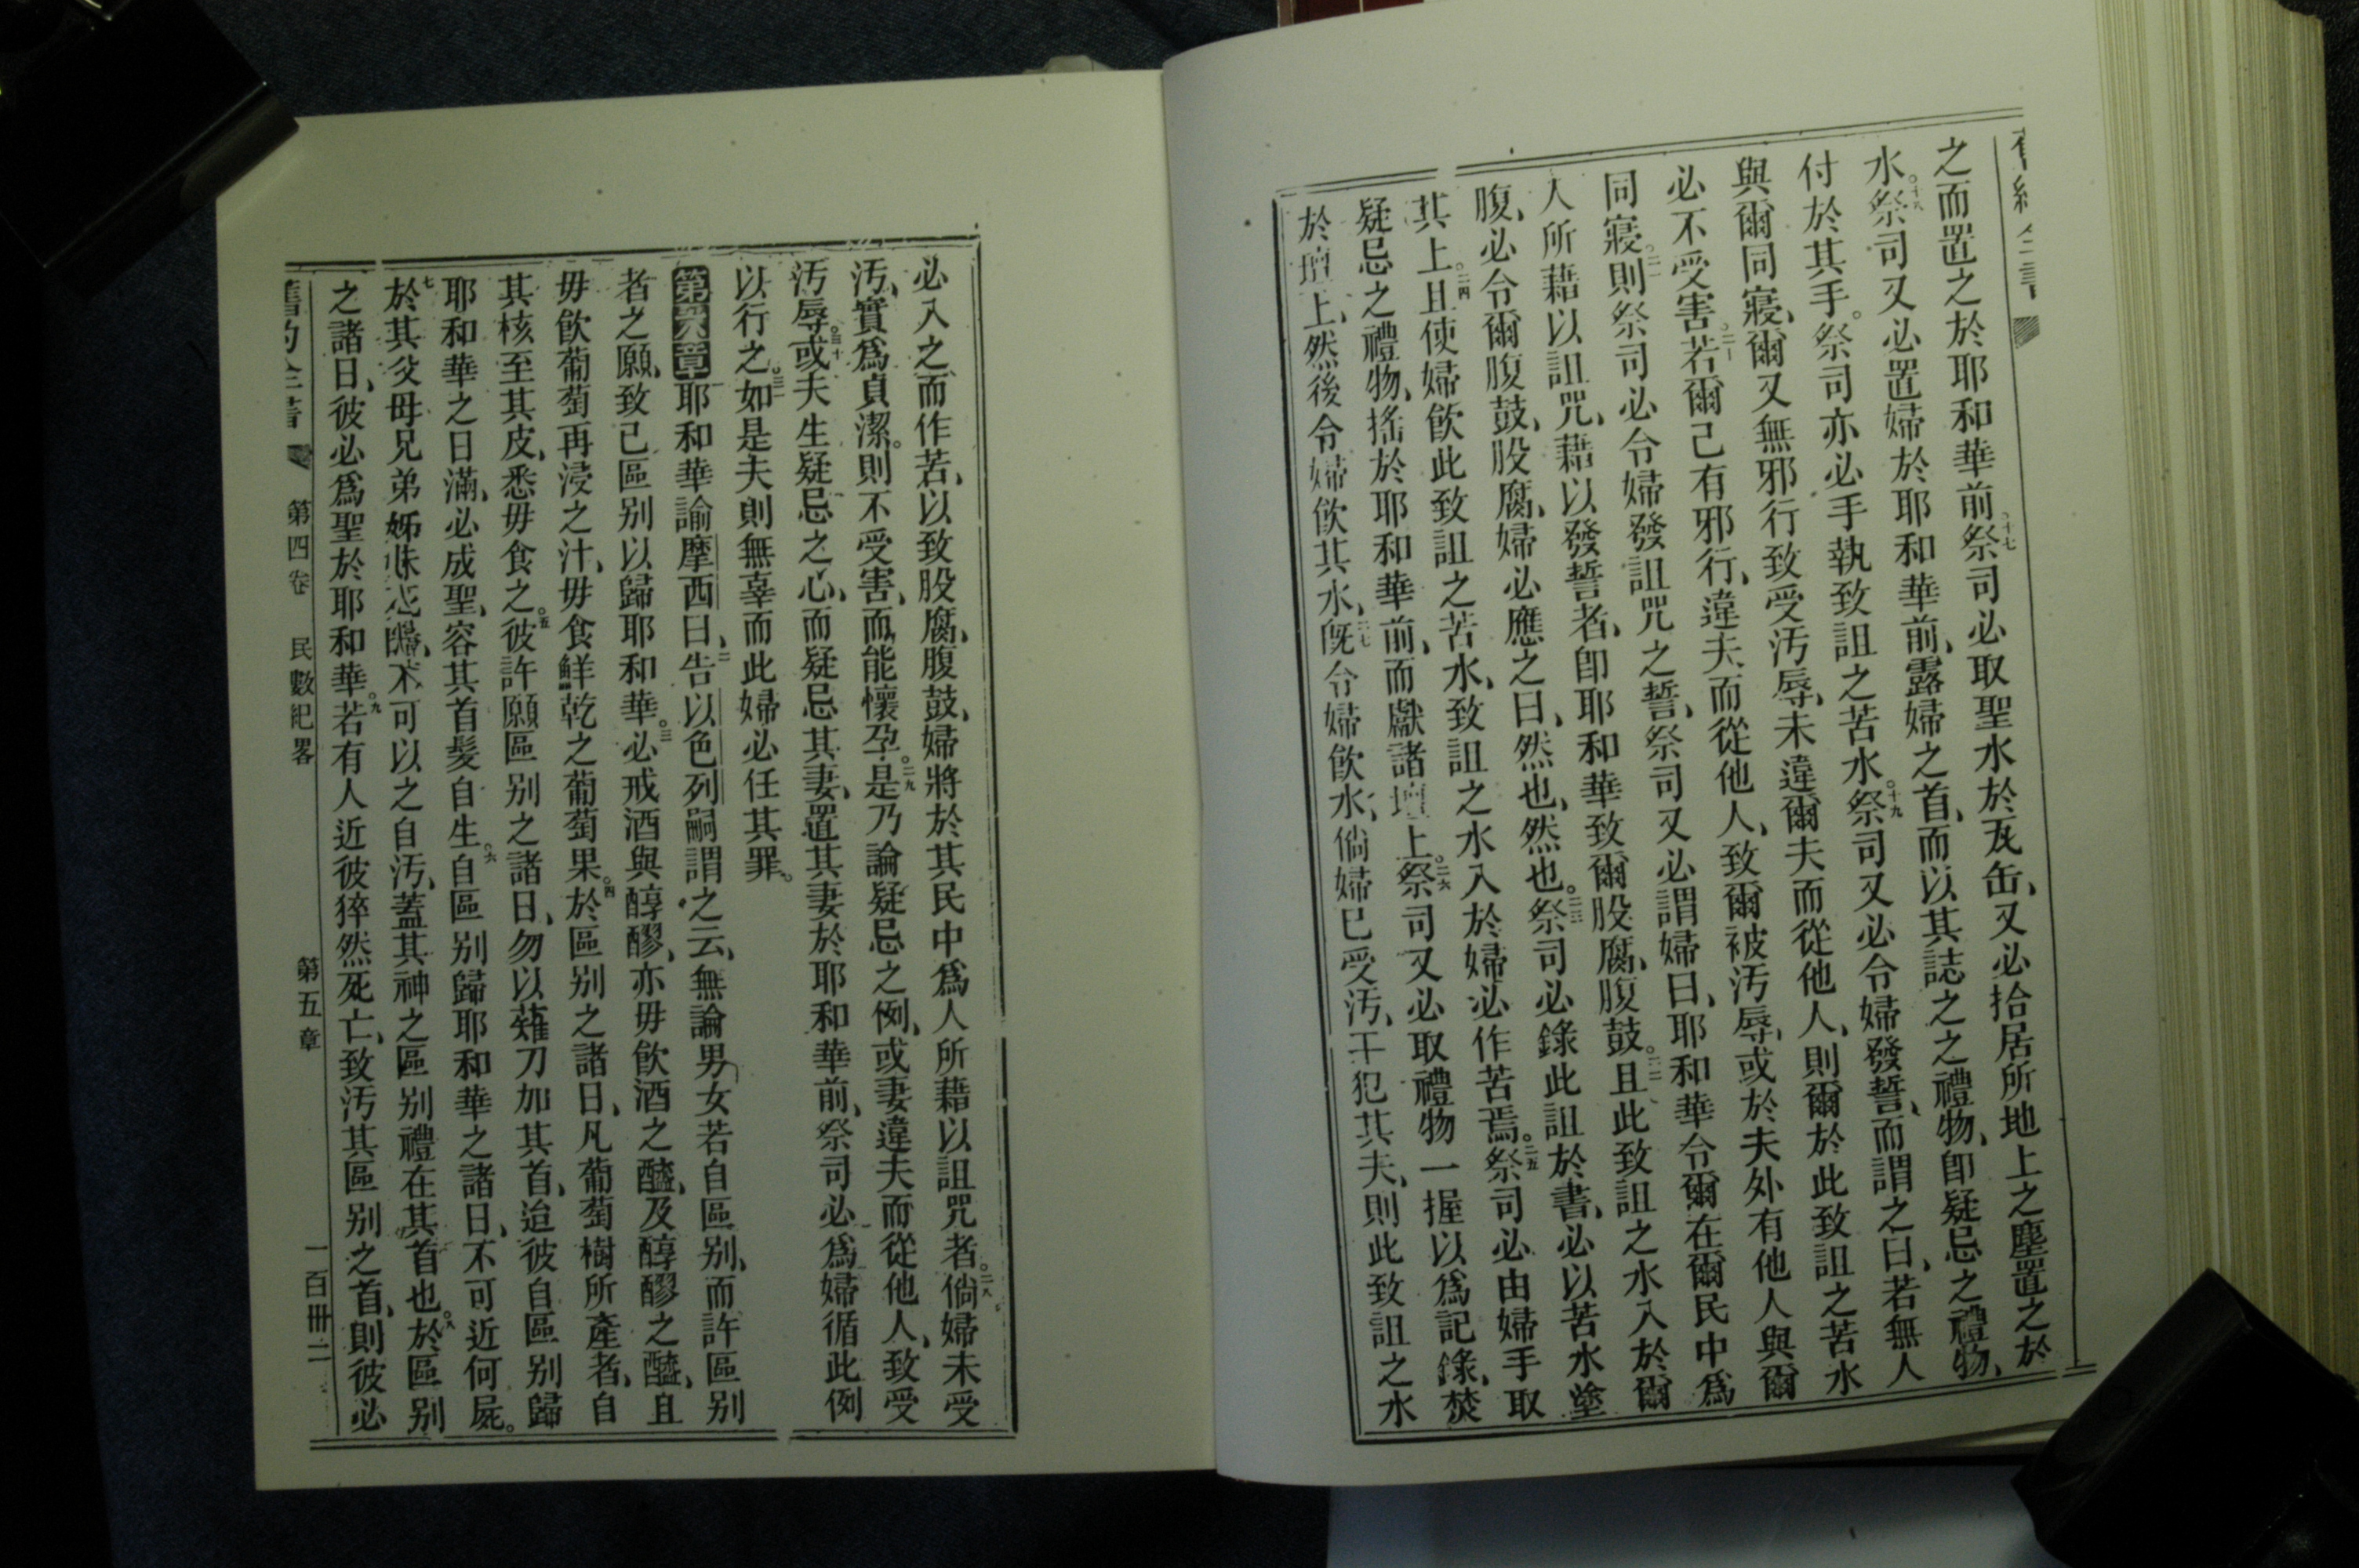 之而置之於耶和華前。十七祭司必取聖水於瓦缶、又必拾居所地上之塵置之於
水。十八祭司又必置婦於耶和華前、露婦之首、而以其誌之之禮物、卽疑忌之禮物、
付於其手。祭司亦必手執致詛之苦水。十九祭司又必令婦發誓、而謂之曰、若無人
與爾同寢、爾又無邪行致受汚辱、未違爾夫而從他人、則爾於此致詛之苦水
必不受害。二十若爾已有邪行、違夫而從他人、致爾被汚辱、或於夫外有他人與爾
同寢。二一則祭司必令婦發詛咒之誓、祭司又必謂婦曰、耶和華令爾在爾民中爲
人所藉以詛咒、藉以發誓者、卽耶和華致爾股腐、腹鼓。二二且此致詛之水入於爾
腹、必令爾腹鼓、股腐、婦必應之曰、然也、然也。二三祭司必錄此詛於書、必以苦水塗
其上。二四且使婦飮此致詛之苦水、致詛之水入於婦必作苦焉。二五祭司必由婦手取
疑忌之禮物、搖於耶和華前、而獻諸壇上。二六祭司又必取禮物一握以爲記錄、焚
於壇上、然後令婦飮其水、二七旣令婦飮水、倘婦已受汚、干犯其夫、則此致詛之水
必入之而作苦、以致股腐、腹鼓、婦將於其民中爲人所藉以詛咒者。二八倘婦未受
汚、實爲貞潔。則不受害、而能懷孕。二九是乃論疑忌之例、或妻違夫而從他人、致受
汚辱。三十或夫生疑忌之心、而疑忌其妻、置其妻於耶和華前、祭司必爲婦循此例
以行之。三一如是夫則無辜而此婦必任其罪。
第六章耶和華諭摩西曰、二告以色列嗣謂之云、無論男女若自區别、而許區别
者之願、致己區别以歸耶和華。三必戒酒與醇醪、亦毋飮酒之醯、及醇醪之醯、且
毋飮葡萄再浸之汁、毋食鮮乾之葡萄果。四於區别之諸日、凡葡萄樹所產者、自
其核至其皮、悉毋食之。五彼許願區别之諸日、勿以薙刀加其首、迨彼自區别歸
耶和華之日滿、必成聖、容其首髮自生。六自區别歸耶和華之諸日、不可近何屍。
七於其父母兄弟姊妹死不可以之自汚、蓋其神之區别禮在其首也。八於區别
之諸日、彼必爲聖於耶和華。九若有人近彼猝然死亡、致汚其區别之首、則彼必
第四卷 民數紀畧 第五章 一百卌二